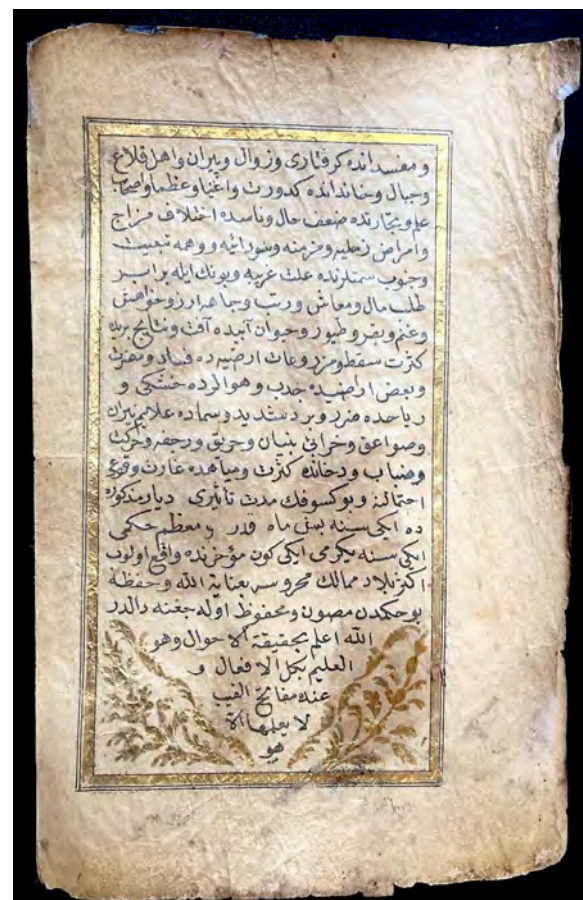 و مفسدانده كرفتارى و زوال و پيران و اهل قلاع
و جبال و خاندانده كدورت و اغنيا و عظما و اصحاب
علم و تجارنده ضعف حال و ناسده اختلاف مزاج
و امراض زحليه و مزمنه و سودائيه و وهمه تبعيت
و جنوب سمتلرنده علت غريبه و بونك ايله برابر
طلب مال و معاش و رتب و جاهـ
و غنم و بقر و طيور و حيوان آبيده آفت و نتايج بريه
كثرت سقط و مزروعات ارضيه ده فساد و مضرت
و بعض اراضيده جدب و هوالرده خشكى و
رياحده ضرر و برد شديد و سماده علايم نيران
و صواعق و خرابئ بنيان و حريق و رجفه و حركت
و ضباب و دخانده كثرت و مياهده غارت وقوعى
احتمالنه و بو كسوفك مدت تأثيرى ديار مذكوره
ده ايكى سنه بش ماه در و معظم حكمى
ايكى سنه يكرمى ايكى كون مؤخرنده واقع اولوب
اكثر بلاد ممالك محروسه بعناية الله و حفظه
بو حكمدن مصون و محفوظ اوله جغنه دالدر
الله اعلم بحقيقة الاحوال وهو
العليم بكل الافعال و
عنده مفاتح الغيب
لا يعلمها الا
هو